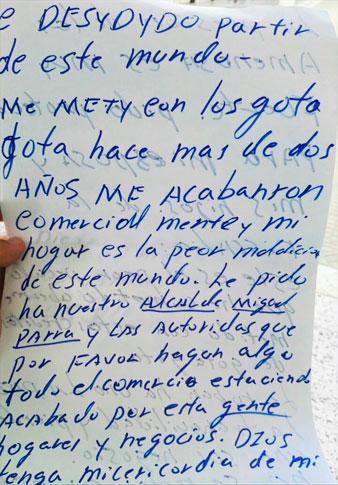 e DESYDYDO partir
de este mundo-
Me METY con los gota
gota hace mas de dos
AÑOS ME Acabanron
comercial mente y mi
hogar es la peor maldicia
de este mundo. Le pido
ha nuestro Alcalde Miguel
PARRA y LAS Autoridas que
por FAVOR hagan algo
todo el comercio esta ciendo
ACABADO por esta gente
hogares y negocios. DIOS
tenga micericordia de mi